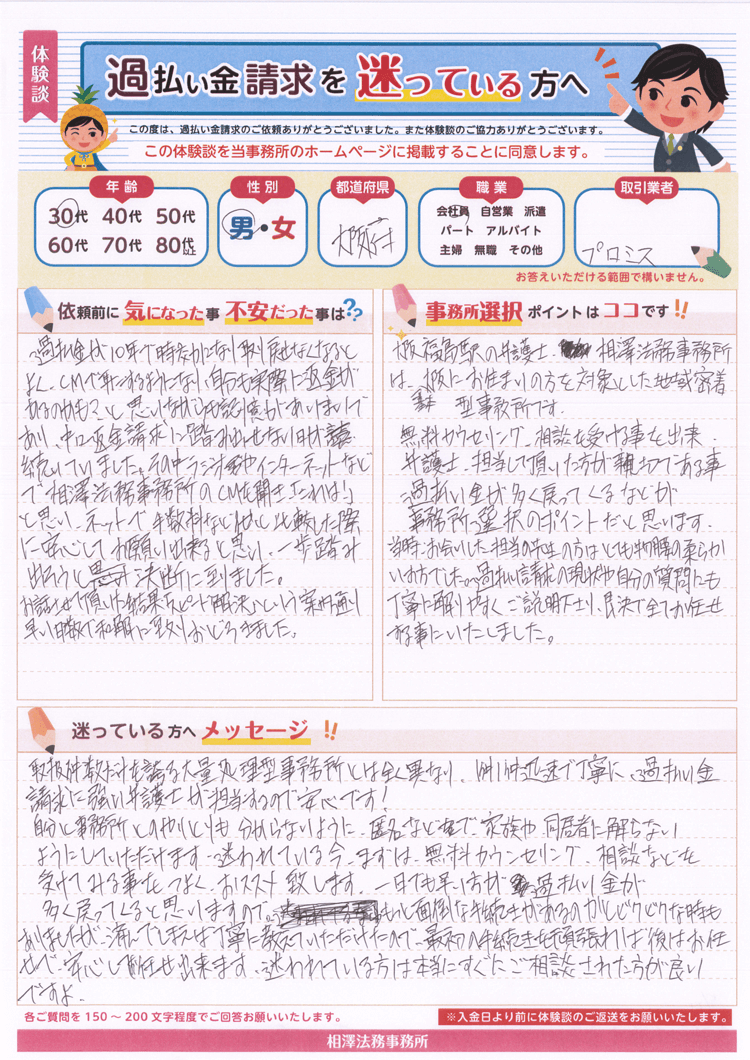 体験談
過払い金請求を迷っている方へ
この度は、過払い金請求のご依頼ありがとうございました。また体験談のご協力ありがとうございます。
この体験談を当事務所のホームページに掲載することに同意します。
年齢
30代 40代 50代
60代 70代 80代以上
性別
男・女
都道府県
大阪府
職業
会社員 自営業 派遣
パート アルバイト
主婦 無職 その他
取引業者
プロミス
お答えいただける範囲で構いません。
依頼前に気になった事 不安だった事は??
過払金が10年で時効になり取り戻せなくなると
よく、CMで耳にするようになり、自分も実際に返金が
あるのかも?と思いながらも記憶があいまいで
あり、中々返金請求に踏み出せない日が
続いていました。その中ラジオやインターネットなど
で相澤法務事務所のCMを聞き「これは!」
と思い、ネットで手数料など他と比較した際
に安心してお願い出来ると思い、一歩踏み
出ろうと決断に到りました。
お話させて頂いた結果スピード解決という案内通り
早い日数で和解に至りおどろきました。
事務所選択ポイントはココです!!
大阪福島駅の弁護士 相澤法務事務所
は、大阪にお住まいの方を対象とした地域密着
型事務所です。
無料カウセリング、相談を受ける事を出来、
弁護士、担当して頂いた方が親切である事
過払い金が多く戻ってくるなどが
事務所の選択のポイントだと思います。
当時、お会いした担当の先生の方はとても物腰の柔らか
い方でした。過払い請求の現状や自分の質問にも
丁寧に解りやすくご説明下さり、即決で全てお任せ
する事にいたしました。
迷っている方へメッセージ!!
取扱件数だけを誇る大量処理型事務所とは全く異なり、1件1件迅速で丁寧に、過払い金
請求に強い弁護士が担当するので安心です!
自分と事務所とのやりとりも分からないように、匿名など で、家族や同居者に解らない
ようにしていただけます。迷われている今、まずは、無料カウンセリング、相談などを
受けてみる事をつよく、おススメ致します。一日でも早い方が 過払い金が
多く戻ってくると思いますので。 もっと面倒な手続きがあるのかとビクビクな時も
ありましたが、済んでしまえば丁寧に教えていただけたので、最初の手続きを頑張れば後はお任
せで、安心してお任せ出来ます。迷われている方は本当にすぐにご相談された方が良い
ですよ。
各ご質問を150~200文字程度でご回答お願いいたします。
※入金日より前に体験談のご返送をお願いいたします。
相澤法務事務所